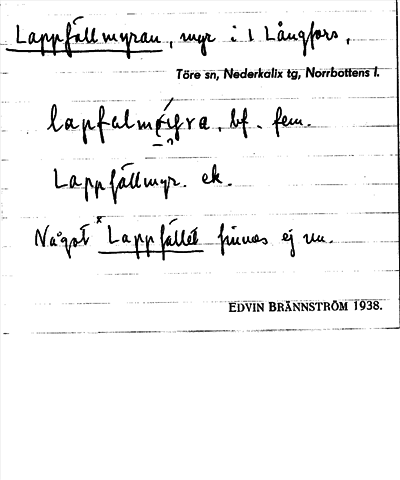 Lappfällmyran, myr i 1 Långfors,
Töre sn, Nederkalix tg, Norrbottens l.
bf. fem.
Lappfällmyr. ek.
Något *Lappfället finnes ej nu.
EDVIN BRÄNNSTRÖM 1938.